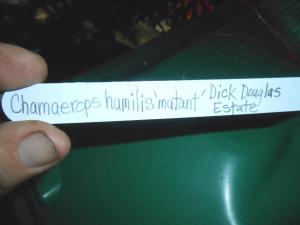 Chamaerops humilis 'mutant' Dick Douglas
Estate